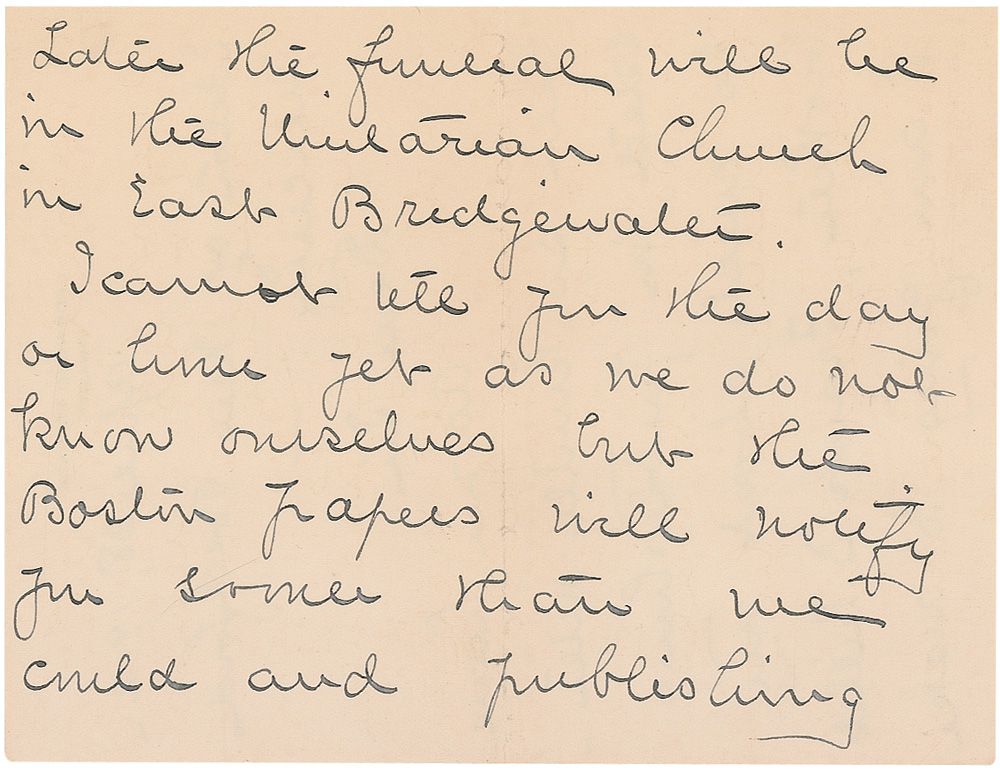 Later the funeral will be
in the Unitarian Church
in East Bridgewater.
I cannot tell you the day
or time yet as we do not
know ourselves but the
Boston papers will notify
you sooner than we
could and publishing